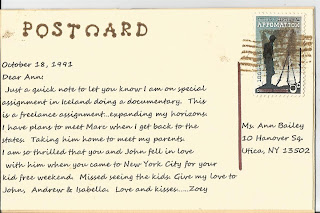 POSTCARD
APPOMATTOX
October 18, 1991
Dear Ann:
Just a quick note to let you know I am on special
assignment in Iceland doing a documentary. This
is a freelance assignment...expanding my horizons.
I have plans to meet Marc when I get back to the
states. Taking him home to meet my parents.
I am so thrilled that you and John fell in love
with him when you came to New York City for your
kid free weekend. Missed seeing the kids. Give my love to
John, Andrew & Isabella. Love and kisses.....Zoey
Ms. Ann Bailey
10 Hanover Sq.
Utica, NY 13502